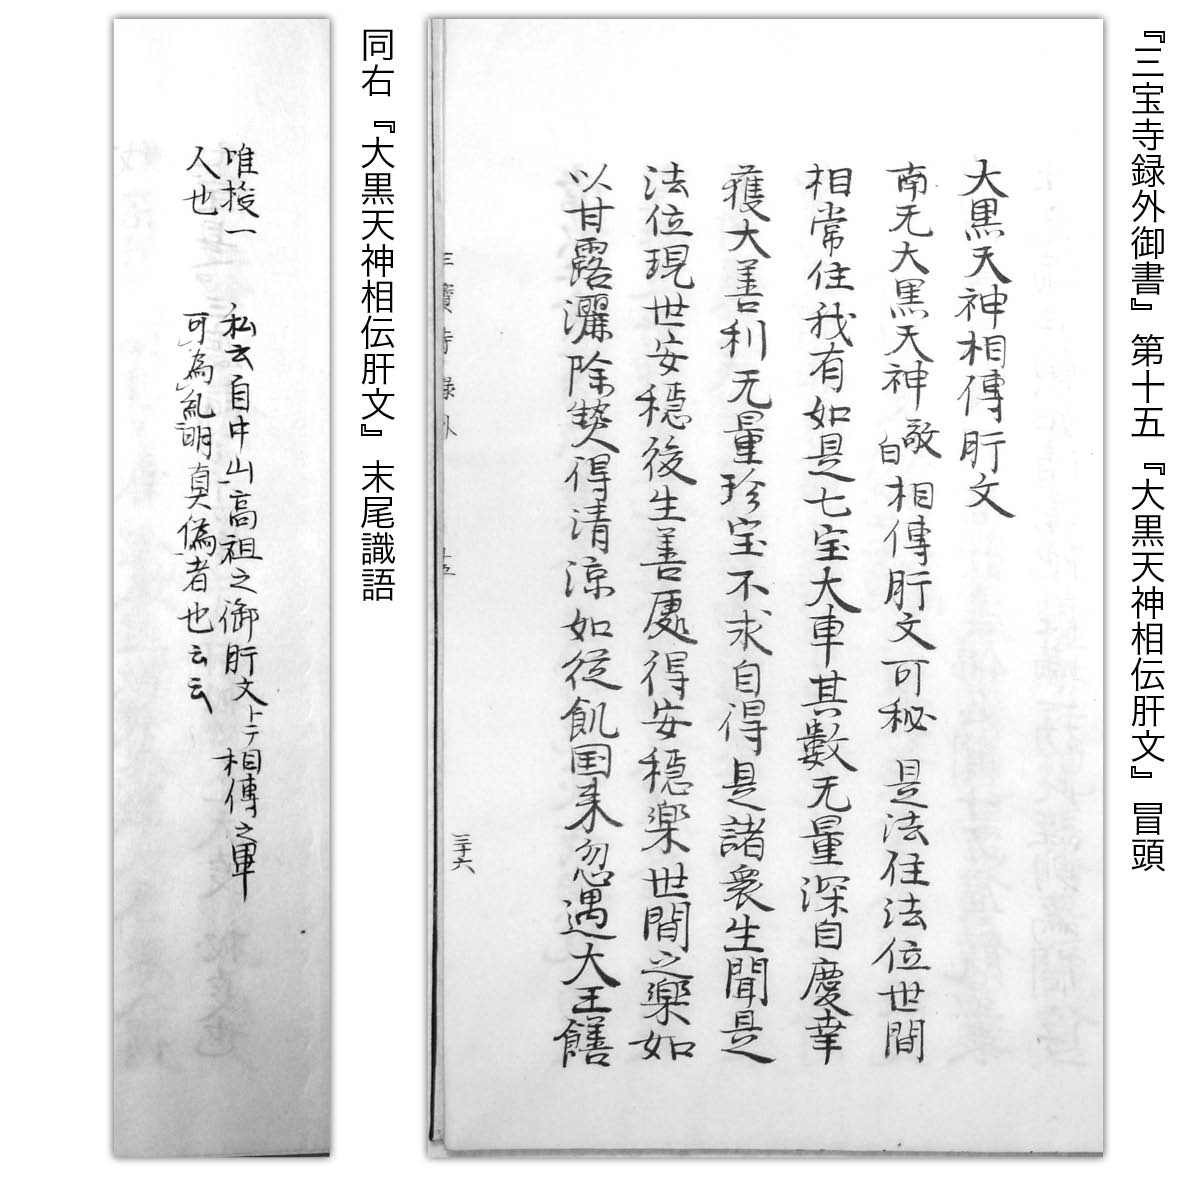 『三宝寺録外御書』 第十五 『大黒天神相伝肝文』 冒頭
大黒天神相傳肝文
南无大黒天神敬白相傳肝文可秘 是法住法位世間
相常住我有如是七宝大車其數无量深自慶幸
獲大善利无量珍宝不求自得是諸衆生聞是
法位現世安穏後生善處得安穏楽世間之樂如
以甘露灑除熱得清涼如従飢国来忽遇大王饍
三寶寺録外 十五
三十六
同右『大黒天神相伝肝文』 末尾識語
唯授一
人也
私云自中山高祖之御肝文上テ相傳之畢
可為糺明真偽者也云云